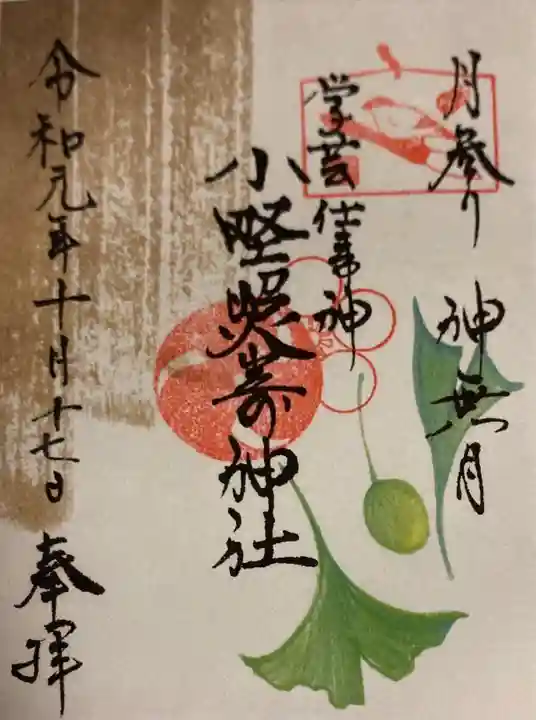 月参り 神無月
学芸 仕事神
小野照崎神社
令和元年十月十七日 奉拝